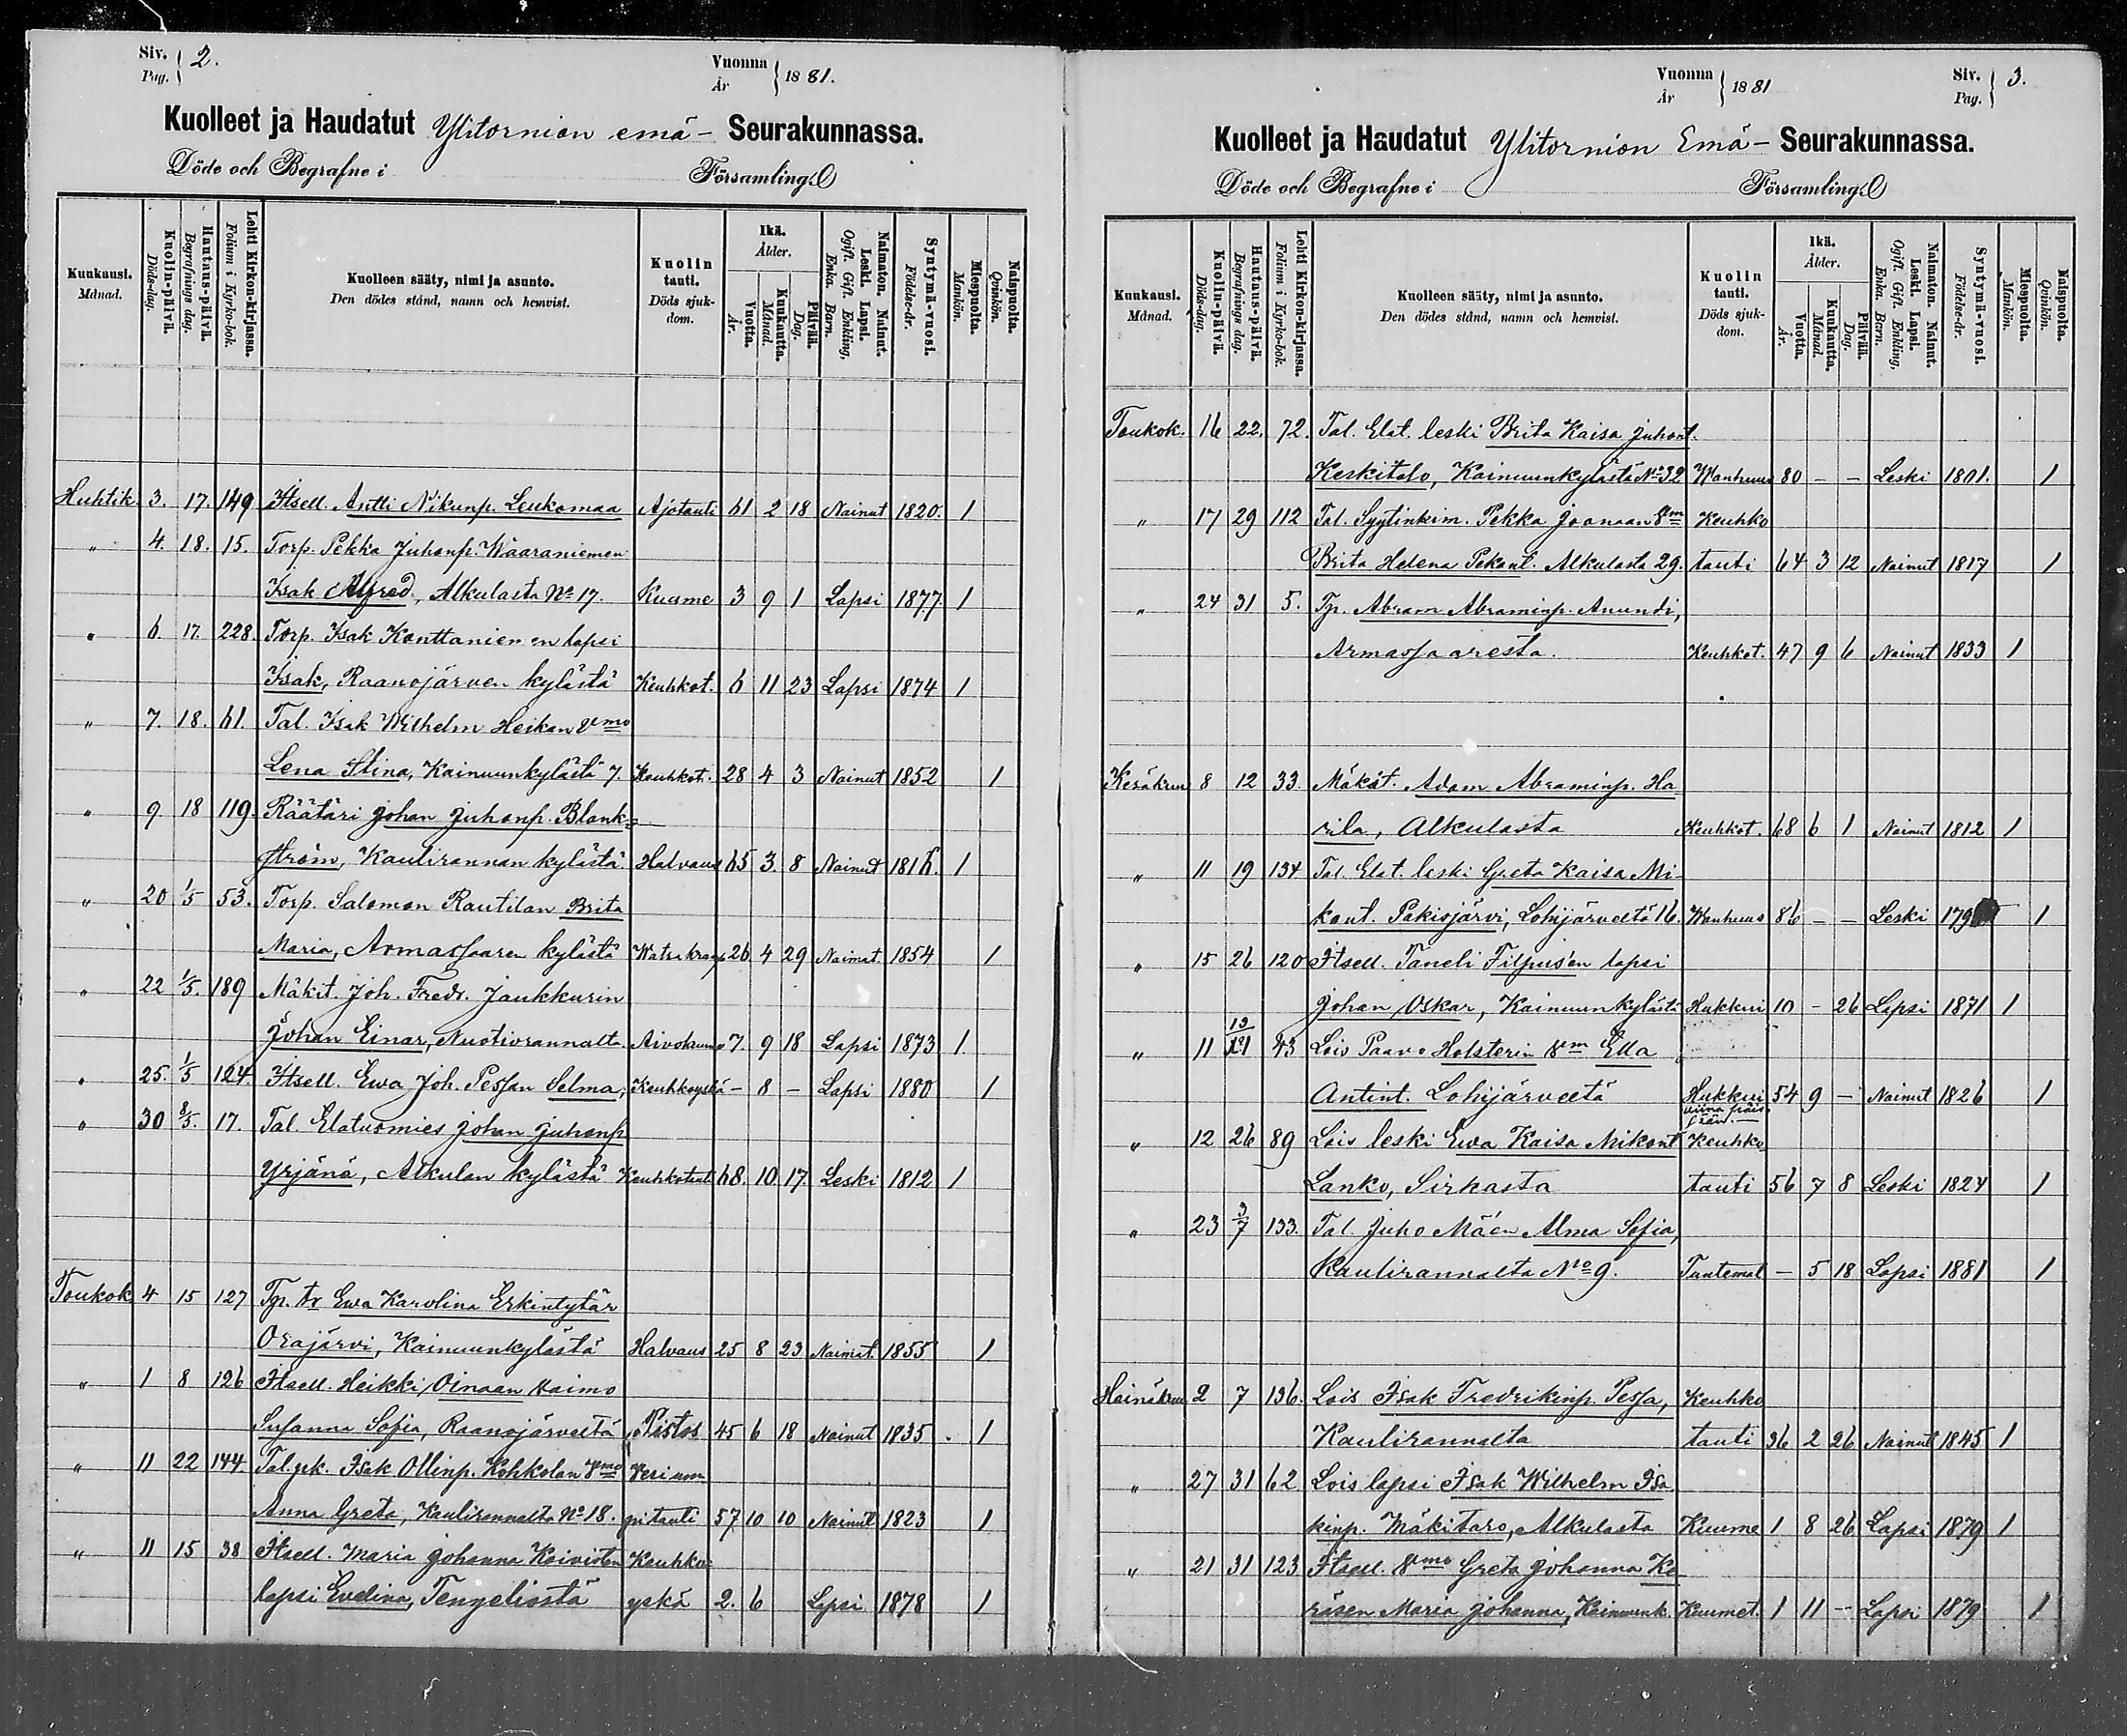 Siv. Pag. 2.
Vuonna År 1881.
Kuolleet ja Haudatut Ylitornion emä- Seurakunnassa.
Döde och Begrafne i Församling.
Kuukausi. Månad.
Kuolin-päivä. Döds-dag.
Hautaus-päivä. Begrafnings dag.
Lehti Kirkon-kirjassa. Folium i Kyrko-bok.
Kuolleen sääty, nimi ja asunto. Den dödes stånd, namn och hemvist.
Kuolin tauti. Döds sjuk-dom.
Ikä. Ålder.
Vuotta. År.
Kuukautta. Månad.
Päivää. Dag.
Naimaton. Nainut. Leski. Lapsi. Ogift. Gift. Enkling, Enka. Barn.
Syntymä-vuosi. Födelse-år.
Miespuolta. Mankön.
Naispuolta. Qvinkön.
Huhtik. 3. 17. 149 Itsell. Antti Nikunp. Leukomaa Ajotauti 61 2 18 Nainut 1820. 1
" 4. 18. 15. Torp. Pekka Juhonp. Waaraniemen
Isak Alfred, Alkulasta No 17. Kuume 3 9 1 Lapsi 1877. 1
" 6. 17. 228. Torp. Isak Konttanien en lapsi
Isak, Raanojärven kylästä Keuhkot. 6 11 23 Lapsi 1874 1
" 7. 18. 61. Tal. Isak Wilhelm Heikan vmo
Lena Stina, Kainuunkylästä 7. Keuhkot. 28 4 3 Nainut 1852 1
" 9. 18 119. Räätäri Johan Juhanp. Blank-
ström, Kaulirannan kylästä Halvaus 65 3. 8 Nainut 1816. 1
" 20 1/5 53. Torp. Salomon Rautilan Brita
Maria, Armassaaren kylästä 26 4 29 Naimat. 1854 1
" 22 1/5. 189 Mäkit. Joh. Fredr. Jaukkurin
Johan Einar, Nuotiorannalta. Aivokuume 7. 9 18 Lapsi 1873 1.
" 25. 1/5 124 Itsell. Ewa Joh. Pessan Selma, Keuhkoyskä - 8 - Lapsi 1880 1
" 30 8/5. 17. Tal. Elatusmies Johan Juhanp
Yrjänä, Alkulan kylästä Keuhkotauti 68. 10 17. Leski 1812 1
Toukok 4 15 127 Tp. tr Ewa Karolina Erkintytär
Orajärvi, Kainuunkylästä Halvaus 25 8 23 Naimat. 1855 1
" 1 8 126 Itsell. Heikki Oinaan vaimo
Susanna Sofia, Raanojärveltä Pistos 45 6 18 Nainut 1835 1
" 11 22 144 Tal. Isak Ollinp. Kohkolan vmo Veriam
Anna Greta, Kaulirannalta No 18. pitauti 57 10 10 Nainut 1823 1
" 11 15 38 Itsell. Maria Johanna Koiviston Keuhko-
lapsi Evelina, Tengeliöstä yskä 2. 6 Lapsi 1878 1
Vuonna År 1881
Siv. Pag. 3.
Kuolleet ja Haudatut Ylitornion Emä- Seurakunnassa.
Döde och Begrafne i Församling.
Kuukausi. Månad.
Kuolin-päivä. Döds-dag.
Hautaus-päivä. Begrafnings dag.
Lehti Kirkon-kirjassa. Folium i Kyrko-bok.
Kuolleen sääty, nimi ja asunto. Den dödes stånd, namn och hemvist.
Kuolin tauti. Döds sjuk-dom.
Ikä. Ålder.
Vuotta. År.
Kuukautta. Månad.
Päivää. Dag.
Naimaton. Nainut. Leski. Lapsi. Ogift. Gift. Enkling, Enka. Barn.
Syntymä-vuosi. Födelse-år.
Miespuolta. Mankön.
Naispuolta. Qvinkön.
Toukok. 16 22. 72. Tal. Elat. leski Brita Kaisa Juhont.
Keskitalo, Kainuunkylästä No 32 Wanhuus 80 - - Leski 1801. 1
" 17 29 112 Tal. Syytinkim. Pekka Joanaan vm Keuhko
Brita Helena Pekant. Alkulasta 29. tauti 64 3 12 Nainut 1817 1
" 24 31 5. Tp. Abram Abraminp. Anundi,
Armassaaresta. Keuhkot. 47 9 6 Nainut 1833 1
Kesäkuu 8 12 33. Mäkit. Adam Abraminp. Ha
rila, Alkulasta Keuhkot. 68 6 1 Nainut 1812 1
" 11 19 134 Tal. Elat. leski Greta Kaisa Mi-
kont. Pakisjärvi, Lohijärveltä 16. Wanhuus 86 - - Leski 1
" 15 26 120 Itsell. Taneli Filpus'en lapsi
Johan Oskar, Kainuunkylästä Hukkui 10 - 26 Lapsi 1871 1
" 11 19 43 Lois Paavo Holsterin vm Ella
Antint. Lohijärveltä Hukkui 54 9 - Nainut 1826 1
" 12 26 89 Lois leski Ewa Kaisa Mikont Keuhko
Lanko, Sirkasta tauti 56 7 8 Leski 1824 1
" 23 3/7 133. Tal. Juho Mäen Alma Sofia,
Kaulirannalta No 9. Tuntemat - 5 18 Lapsi 1881 1
Heinäkuu 2 7 136. Lois Isak Fredrikinp. Pessa, Keuhko
Kaulirannalta tauti 36 2 26 Nainut 1845 1
" 27 31 62 Lois lapsi Isak Wilhelm Isa
kinp. Mäkitaro, Alkulasta Kuume 1 8 26 Lapsi 1879 1
" 21 31 123 Itsell. vmo Greta Johanna Ke
räsen Maria Johanna, Kainuunk. Kuumet. 1 11 - Lapsi 1879 1